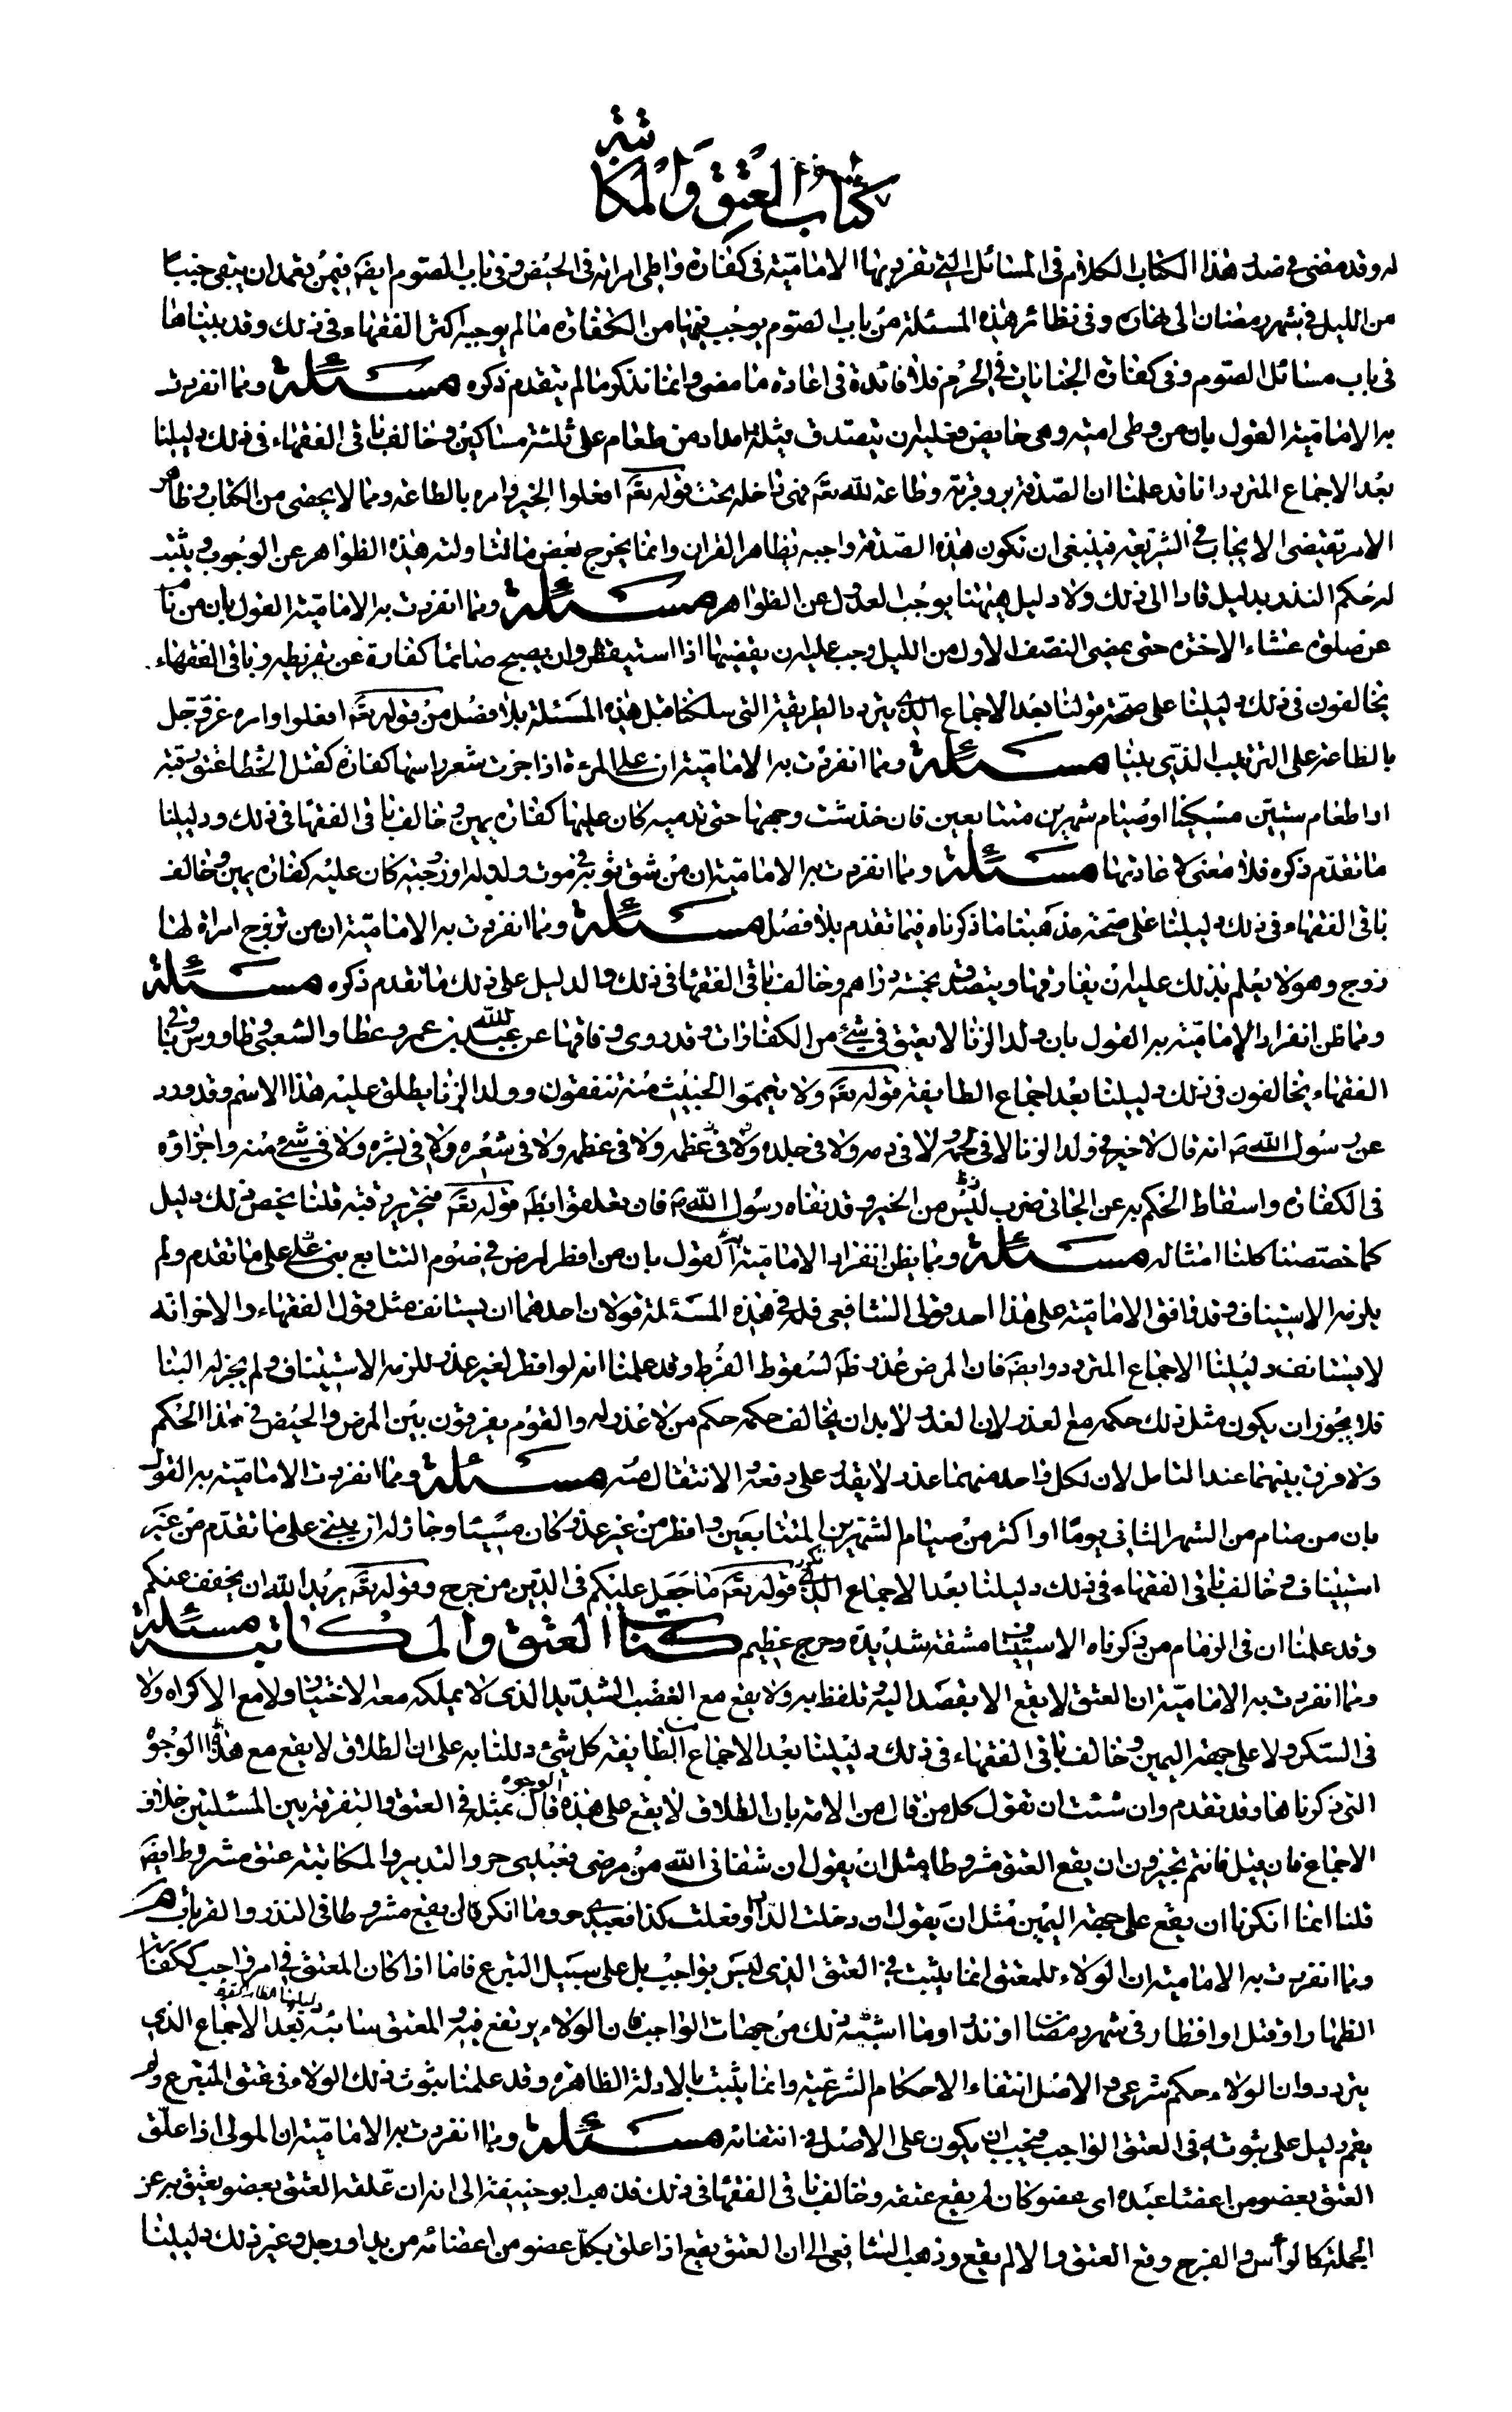 كتاب العتق والمكاتبة
له وقد مضى في صدر هذا الكتاب الكلام في المسائل التي تفرد بها الامامية في كفارة واطى امراته في الحيض وفي باب الصوم ايضَ فيمن تعمد ان يبقى جنبا
من الليل في شهر رمضان الى نهاره وفي نظائر هذه المسئلة من باب الصوم يوجب فيها من الكفارة ما لم يوجبه اكثر الفقهاء في ذلك وقد بيناها
في باب مسائل الصوم وفي كفارة الجنايات في الحرم فلا فائدة في اعادة ما مضى وانما نذكر ما لم يتقدم ذكره مسئلة ومما انفردت
به الامامية القول بان من وطى امته وهي حايض فعليه ان يتصدق بثلثة امداد من طعام على ثلثة مساكين وخالف باقي الفقهاء في ذلك دليلنا
بعد الاجماع المتردد انا قد علمنا ان الصدقة بر وقربة وطاعة لله تعَ فهي داخلة تحت قوله تعَ افعلوا الخير وامره بالطاعة ومما لا يحصى من الكتاب وظاهر
الامر يقتضى الايجاب في الشريعة فينبغي ان تكون هذه الصدقة واجبه بظاهر القران وانما يخرج بعض ما تتناوله هذه الظواهر عن الوجوب ويثبت
له حكم الندب بدليل قادا الى ذلك ولا دليل هيهنا يوجب العدول عن الظواهر مسئلة ومما انفردت به الامامية القول بان من نام
عن صلوة عشاء الاخرة حتى يمضى النصف الاول من الليل وجب عليه ان يقضيها اذا استيقظ وان يصبح صائما كفارة عن تفريطه وباقي الفقهاء
يخالفون في ذلك دليلنا على صحة قولنا بعد الاجماع الذي يتردد الطريقة التي سلكناها قبل هذه المسئلة بلا فصل من قوله تعَ افعلوا وامره عز وجل
بالطاعة على الترتيب الذي بينا مسئلة ومما انفردت به الامامية ان على المرءة اذا جزت شعر راسها كفارة كقتل الخطا عتق رقبة
او اطعام ستين مسكينا او صيام شهرين متتابعين فان خدشت وجهها حتى تدميه كان عليها كفارة يمين وخالف باقي الفقها في ذلك ودليلنا
ما تقدم ذكره فلا معنى لاعادتها مسئلة ومما انفردت به الامامية ان من شق ثوبه في موت ولد له او زوجته كان عليه كفارة يمين وخالف
باقي الفقهاء في ذلك دليلنا على صحة مذهبنا ما ذكرناه فيما تقدم بلا فصل مسئلة ومما انفردت به الامامية ان من تزوج امراة لها
زوج وهو لا يعلم بذلك عليه ان يفارقها ويتصدق بخمسة دراهم وخالف باقي الفقها في ذلك والدليل على ذلك ما تقدم ذكره مسئلة
ومما ظن انفراد الامامية به القول بان ولد الزنا لا يعتق في شئ من الكفارات وقد روى وفاقها عن عبد الله بن عمر وعطا والشعبي وطاووس وباقي
الفقهاء يخالفون في ذلك دليلنا بعد اجماع الطايفة قوله تعَ ولا تيمموا الخبيث منه تنفقون وولد الزنا يطلق عليه هذا الاسم وقد ورد
عن رسول الله ص انه قال لا خير في ولد الزنا لا في لحمه ولا في دمه ولا في جلده ولا في عظمه ولا في شعره ولا في بشره ولا في شئ منه واجزاؤه
في الكفارة واسقاط الحكم به عن الجاني ضرب من الخير وقد نفاه رسول الله ص فان تعلقوا بظَ قوله تعَ فتحرير رقبة قلنا نخص ذلك بدليل
كما خصصنا كلنا امثاله مسئلة ومما يظن انفراد الامامية به القول بان من افطر لمرض في صوم التتابع بنى على ما تقدم ولم
يلزمه الاستيناف وقد وافق الامامية على هذا احد قولى الشافعي فله في هذه المسئلة قولان احدهما ان يستانف مثل قول الفقهاء والاخر انه
لا يستانف دليلنا الاجماع المتردد وايضَ فان المرض عذر ظَ لسقوط الفرض وقد علمنا انه لو افطر لغير عذر للزمه الاستيناف ولم يجز له البنا
فلا يجوز ان يكون مثل ذلك حكمه مع العذر لان العذر لا بد ان يخالف حكمه حكم من لا عذر له والقوم يفرقون بين المرض والحيض في هذا الحكم
ولا فرق بينهما عند التامل لان لكل واحد منهما عذر لا يقدر على دفعه والانتقال منه مسئلة ومما انفردت الامامية به القول
بان من صام من الشهر الثاني يوما او اكثر من صيام الشهرين المتتابعين وافطر من غير عذر كان مسيئا وجاز له ان يبنى على ما تقدم من غير
استيناف وخالف باقي الفقهاء في ذلك دليلنا بعد الاجماع الذي تكرر قوله تعَ ما جعل عليكم في الدين من حرج وقوله تعَ يريد الله ان يخفف عنكم
وقد علمنا ان في الزام من ذكرناه الاستيناف مشقة شديدة وحرج عظيم كتاب العتق والمكاتبة مسئلة
ومما انفردت به الامامية ان العتق لا يقع الا بقصد اليه وتلفظ به ولا يقع مع الغضب الشديد الذي لا يملك معه الاختيار ولا مع الاكراه ولا
في السكر ولا على جهة اليمين وخالف باقي الفقهاء في ذلك دليلنا بعد الاجماع الطايفة كل شئ دللنا به على ان الطلاق لا يقع مع هذه الوجوه
التي ذكرناها وقد تقدم وان شئت ان تقول كل من قال من الامة بان الطلاق لا يقع على هذه الوجوه قال بمثله في العتق والتفرقة بين المسئلتين خلاف
الاجماع فان قيل فانتم تجيزون ان يقع العتق مشروطا مثل ان يقول ان شفاني الله من مرضى فعبدى حر والتدبير والمكاتبة عتق مشروط ايضَ
قلنا انما انكرنا ان يقع على جهة اليمين مثل ان يقول ان دخلت الدار او فعلت كذا فعبدى حر وما انكرنا ان يقع مشروطا في النذر والقربات
ومما انفردت به الامامية ان الولاء للمعتق انما يثبت في العتق الذي ليس بواجب بل على سبيل التبرع فاما اذا كان المعتق في امر واجب ككفارة
الظهار او قتل او افطار في شهر رمضان او نذر او ما اشبه ذلك من جهات الواجب فان الولاء يرتفع فيه والمعتق سائبة دليلنا بعد الاجماع الذي
يتردد وان الولاء حكم شرعي والاصل انتفاء الاحكام الشرعية وانما يثبت بالادلة الظاهرة وقد علمنا ثبوت ذلك الولاء في عتق المتبرع ولم
يقم دليل على ثبوته في العتق الواجب فيجب ان يكون على الاصل في انتفائه مسئلة ومما انفردت به الامامية ان المولى اذا علق
العتق بعضو من اعضا عبده اى عضو كان لم يقع عتقه وخالف باقي الفقها في ذلك فذهب ابو حنيفة الى انه ان علقه العتق بعضو يعتق به عن
الجملة كالراس والفرج وقع العتق والا لم يقع وذهب الشافعي الى ان العتق يقع اذا علق بكل عضو من اعضائه من يد او رجل وغير ذلك دليلنا